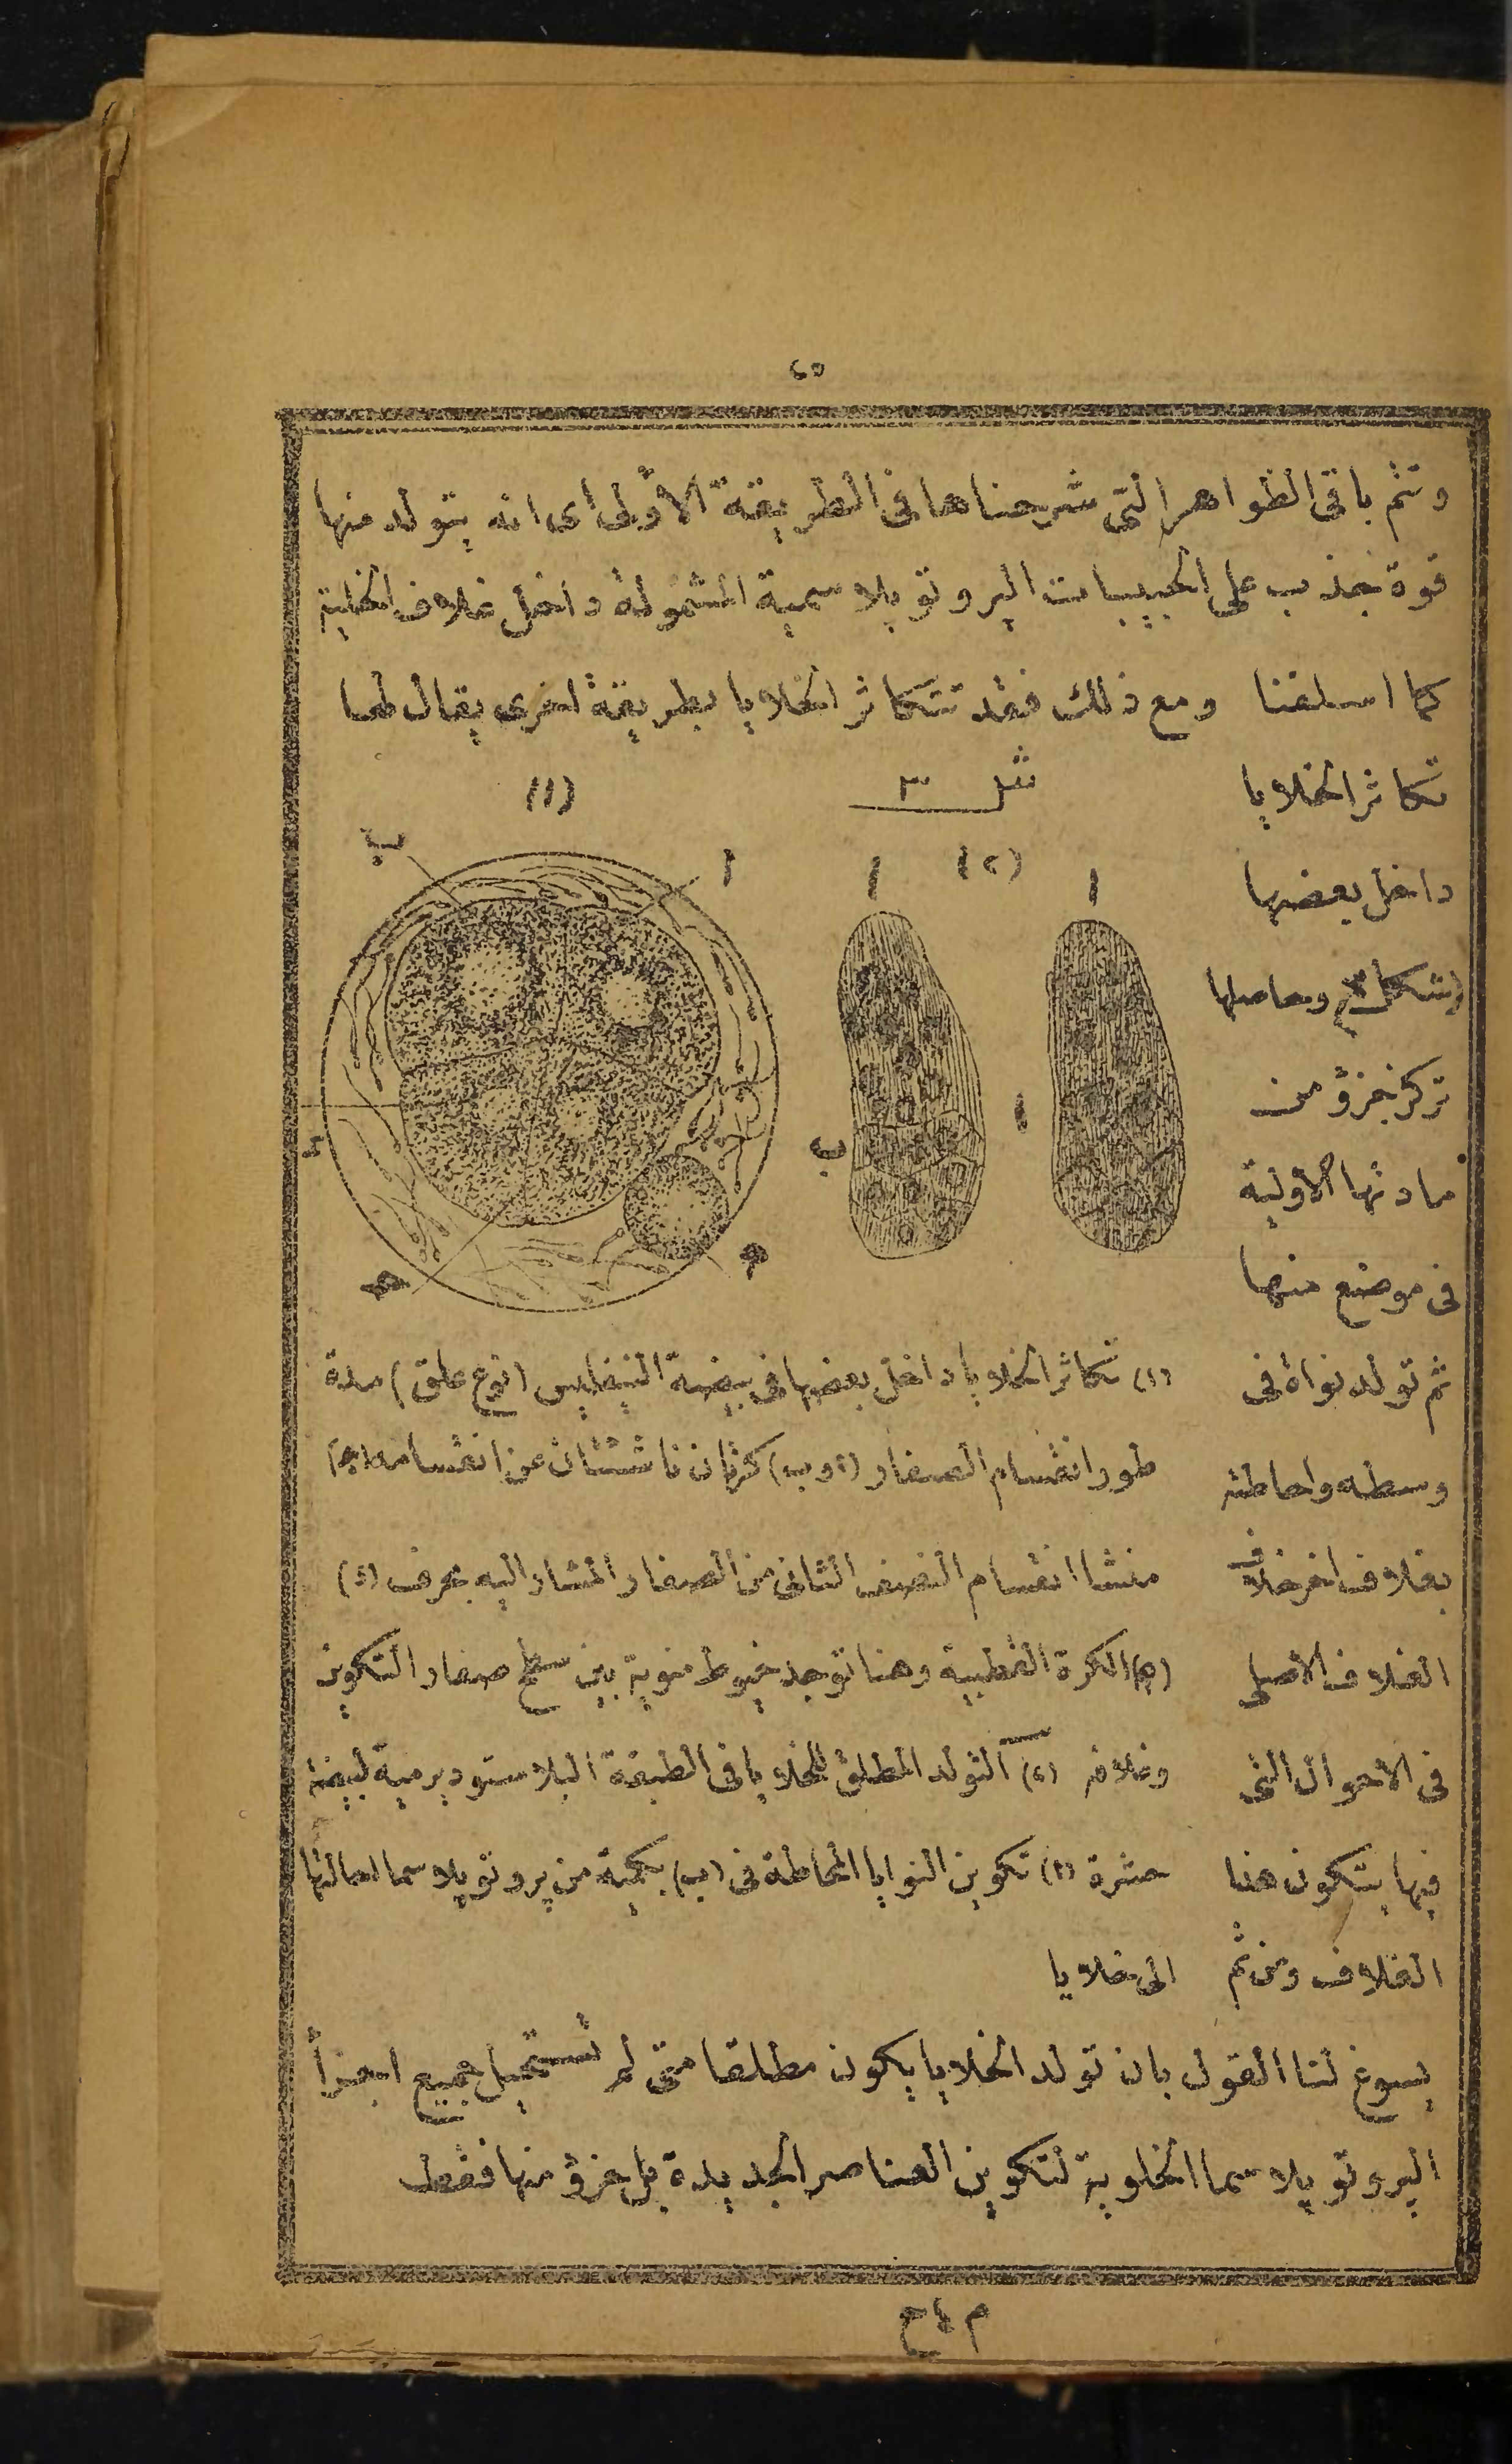 ٢٥
وتتم باقى الظواهر التى شرحناها فى الطريقة الاولى اى انه يتولد منها
قوة تجذب على الحبيبات البروتوبلاسمية المشمولة داخل غلاف الخلية
كما اسلفنا ومع ذلك فقد تتكاثر الخلايا بطريقة اخرى يقال لها
تكاثر الخلايا
داخل بعضها
(شكل ٣) وحاصلها
تركز جزؤ من
مادتها الاولية
فى موضع منها
ثم تولد نواة فى
وسطه واحاطته
بغلاف اخر خلاف
الغلاف الاصلى
فى الاحوال التى
فيها يتكون هذا
الغلاف ومن ثم
شكل ٣
(١)
(٢)
ا
ب
ا
ا
ا
ب
د
ح
ه
(١) تكاثر الخلايا داخل بعضها فى بيضة النيفليس (نوع علق) مدة
طور انقسام الصفار (ا و ب) كرتان ناشئتان عن انقسامه (ح)
منشا انقسام النصف الثانى من الصفار المشار اليه بحرف (د)
(ه) الكرة القطبية وهنا توجد خيوط منوية بين سطح صفار التكوين
وغلافه (٢) التولد المطلق للخلايا فى الطبقة البلاستوديرمية لبيضة
حشرة (ا) تكوين النوايا المحاطة فى (ب) بكمية من پروتوپلاسما احالتها
الى خلايا
يسوغ لنا القول بان تولد الخلايا يكون مطلقا متى لم تستحيل جميع اجزأ
البروتوپلاسما الخلوية لتكوين العناصر الجديدة بل جزؤ منها فقط
م ٤ ح